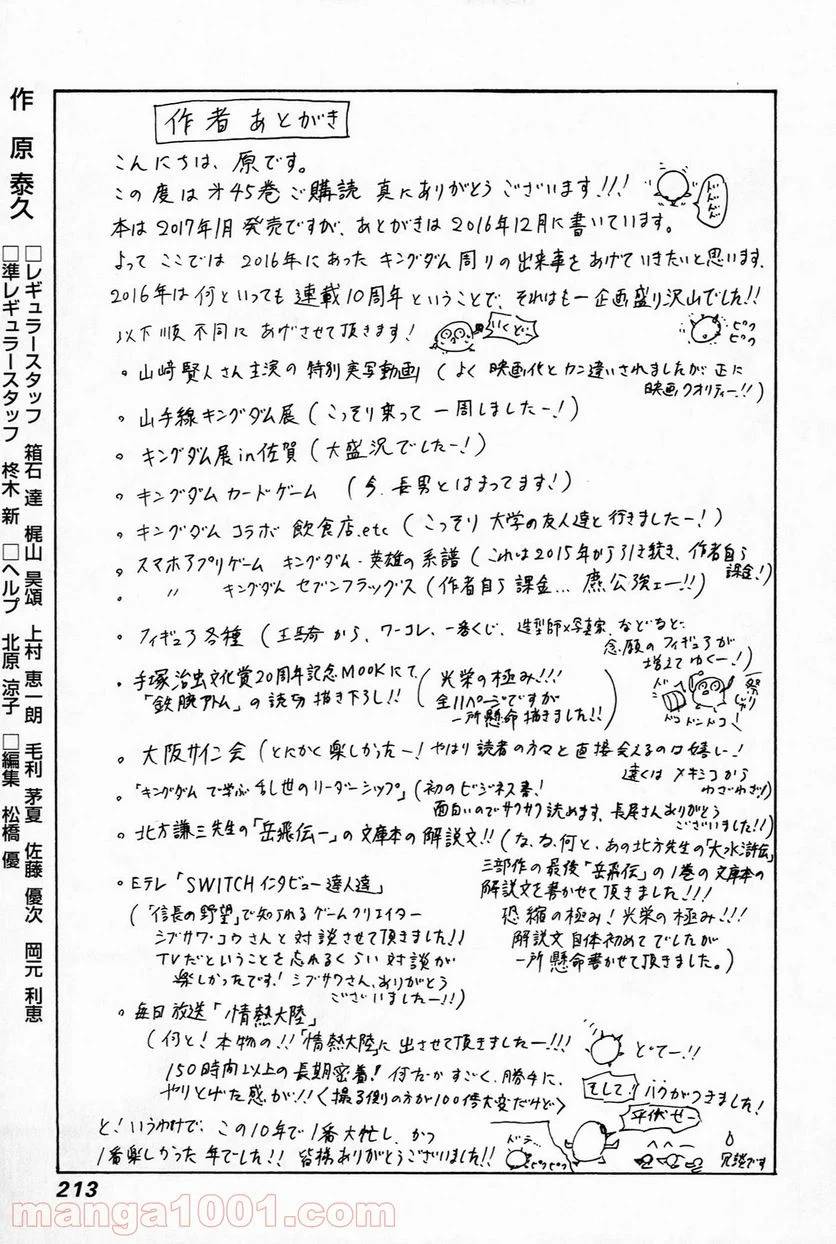 作 原泰久
□レギュラースタッフ 箱石 達 梶山 昊頌 上村 恵一朗 毛利 茅夏 佐藤 優次 岡元 利恵
□準レギュラースタッフ 柊木 新 □ヘルプ 北原 涼子 □編集 松橋 優
作者あとがき
こんにちは、原です。
この度は才45巻ご購読 真にありがとうございます!!!
ドドドドド
本は2017年1月発売ですが、あとがきは2016年12月に書いています。
よって ここでは 2016年にあった キングダム周りの出来事をあげていきたいと思います。
2016年は何といっても 連載10周年ということで、それはもー企画盛り沢山でした!!
以下順不同に あげさせて頂きます!
いくどー
ピク ピク
。山﨑賢人さん主演の 特別実写動画 (よく 映画化とカン違いされましたが 正に
映画クオリティー!!)
。山手線キングダム展 (こっそり乗って 一周しましたー!)
。キングダム展in佐賀 (大盛況でしたー!)
。キングダム カードゲーム (今、長男とはまってます!)
。キングダム コラボ 飲食店.etc (こっそり 大学の友人達と行きましたー!)
。スマホアプリゲーム キングダム・英雄の系譜 (これは2015年から引き続き、作者自ら
課金!)
。 〃 キングダム セブンフラッグス (作者自ら課金… 麃公強ェー!!)
。フィギュア各種 (王騎から、ワーコレ、一番くじ、造型師×写真家、などなど
念願のフィギュアが
増えてゆくー!)
。手塚治虫文化賞20周年記念MOOKにて
「鉄腕アトム」の読切描き下ろし!!
(光栄の極み!!!
全11ページですが
一所懸命描きました!!)
ドン
ドコ ドンドコ!
祭じゃり
。大阪サイン会 (とにかく楽しかったー! やはり読者の方々と直接会えるのは嬉しい!
遠くは メキシコから
わざわざ!)
。「キングダムで学ぶ乱世のリーダーシップ」(初のビジネス書!
面白いのでサクサク読めます、長尾さんありがとう
ございました!!)
。北方謙三先生の「岳飛伝一」の文庫本の解説文!! (な、な、何と、あの北方先生の「大水滸伝」
三部作の最後「岳飛伝」の1巻の文庫本の
解説文を書かせて頂きました!!!
恐縮の極み!光栄の極み!!!
解説文自体初めてでしたが
一所懸命書かせて頂きました。)
。Eテレ「SWITCHインタビュー達人達」
(「信長の野望」で知られるゲームクリエイター
シブサワ・コウさんと対談させて頂きました!!
TVだということを忘れるくらい対談が
楽しかったです!シブサワさん、ありがとう
ございましたー!!)
。毎日放送「情熱大陸」
(何と!本物の!!「情熱大陸」に出させて頂きましたー!!!
150時間以上の長期密着!何だかすごく、勝手に、
やりとげた感が!!<撮る側の方が100倍大変だけど>
どてー!!
そして! ハクがつきました!
平伏せー
冗談です
と!いうわけで、この10年で1番大忙し、かつ
1番楽しかった年でした!! 皆様ありがとうございました!!
ドテー
ピクピク
213
manga1001.com